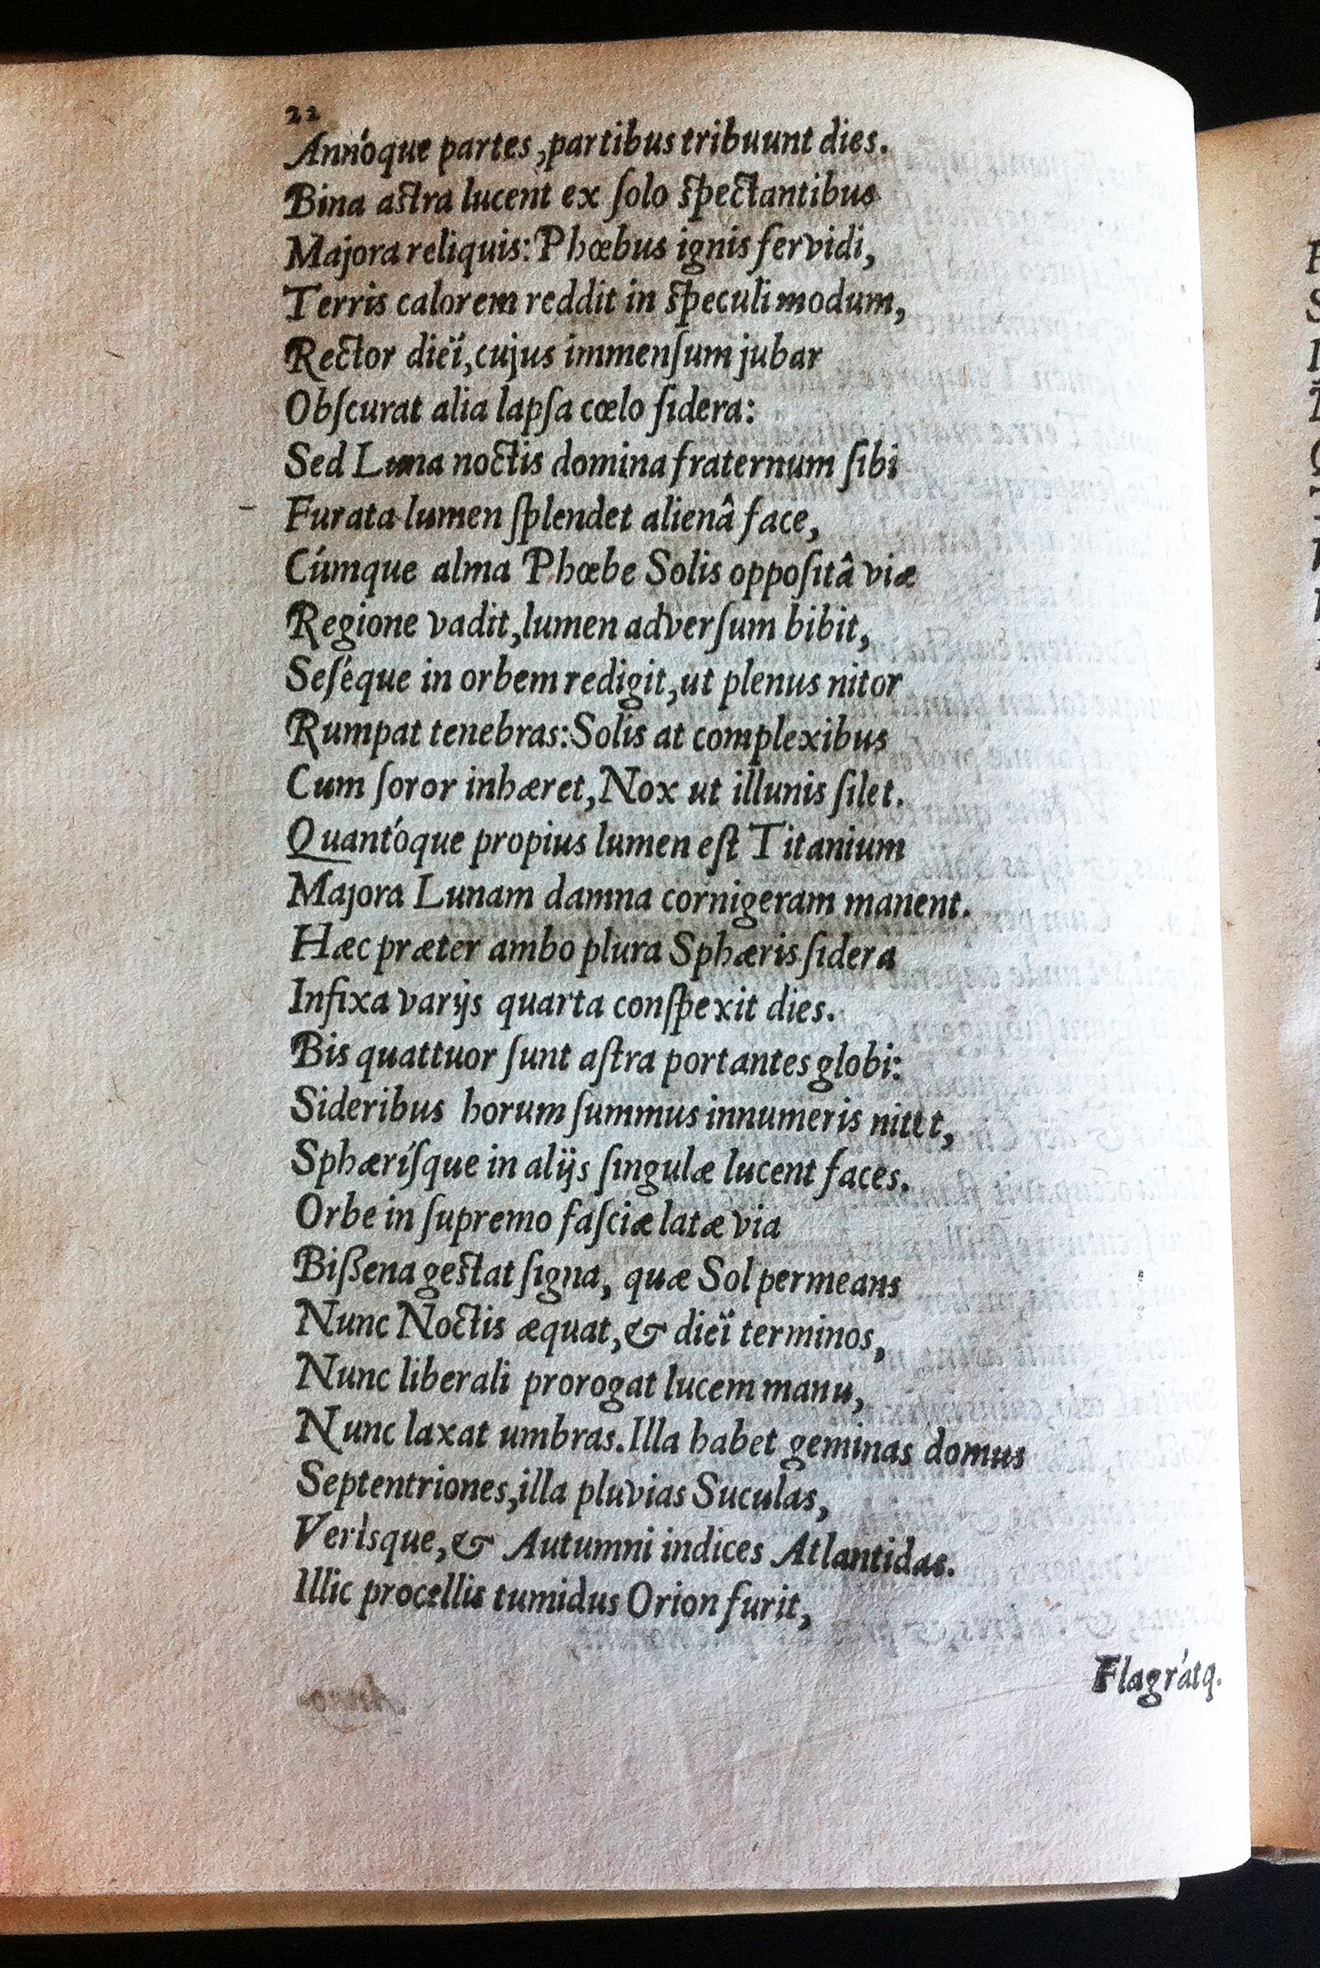 22
Annóque partes, partibus tribuunt dies.
Bina astra lucent ex ſolo ſpectantibus
Majora reliquis: Phœbus ignis fervidi,
Terris calorem reddit in ſpeculi modum,
Rector dieï, cujus immenſum jubar
Obſcurat alia lapſa cœlo ſidera:
Sed Luna noctis domina fraternum ſibi
Furata lumen ſplendet alienâ face,
Cúmque alma Phœbe Solis oppoſitâ viæ
Regione vadit, lumen adverſum bibit,
Seſéque in orbem redigit, ut plenus nitor
Rumpat tenebras: Solis at complexibus
Cum ſoror inhæret, Nox ut illunis ſilet.
Quantóque propius lumen eſt Titanium
Majora Lunam damna cornigeram manent.
Hæc præter ambo plura Sphæris ſidera
Infixa varijs quarta conſpexit dies.
Bis quattuor ſunt aſtra portantes globi:
Sideribus horum ſummus innumeris nitet,
Sphæríſque in alijs ſingulæ lucent faces.
Orbe in ſupremo faſciæ latæ via
Bißena geſtat ſigna, quæ Sol permeans
Nunc Noctis æquat, & dieï terminos,
Nunc liberali prorogat lucem manu,
Nunc laxat umbras. Illa habet geminas domus
Septentriones, illa pluvias Suculas,
Verìsque, & Autumni indices Atlantidas.
Illic procellis tumidus Orion furit,
Flagrátq.